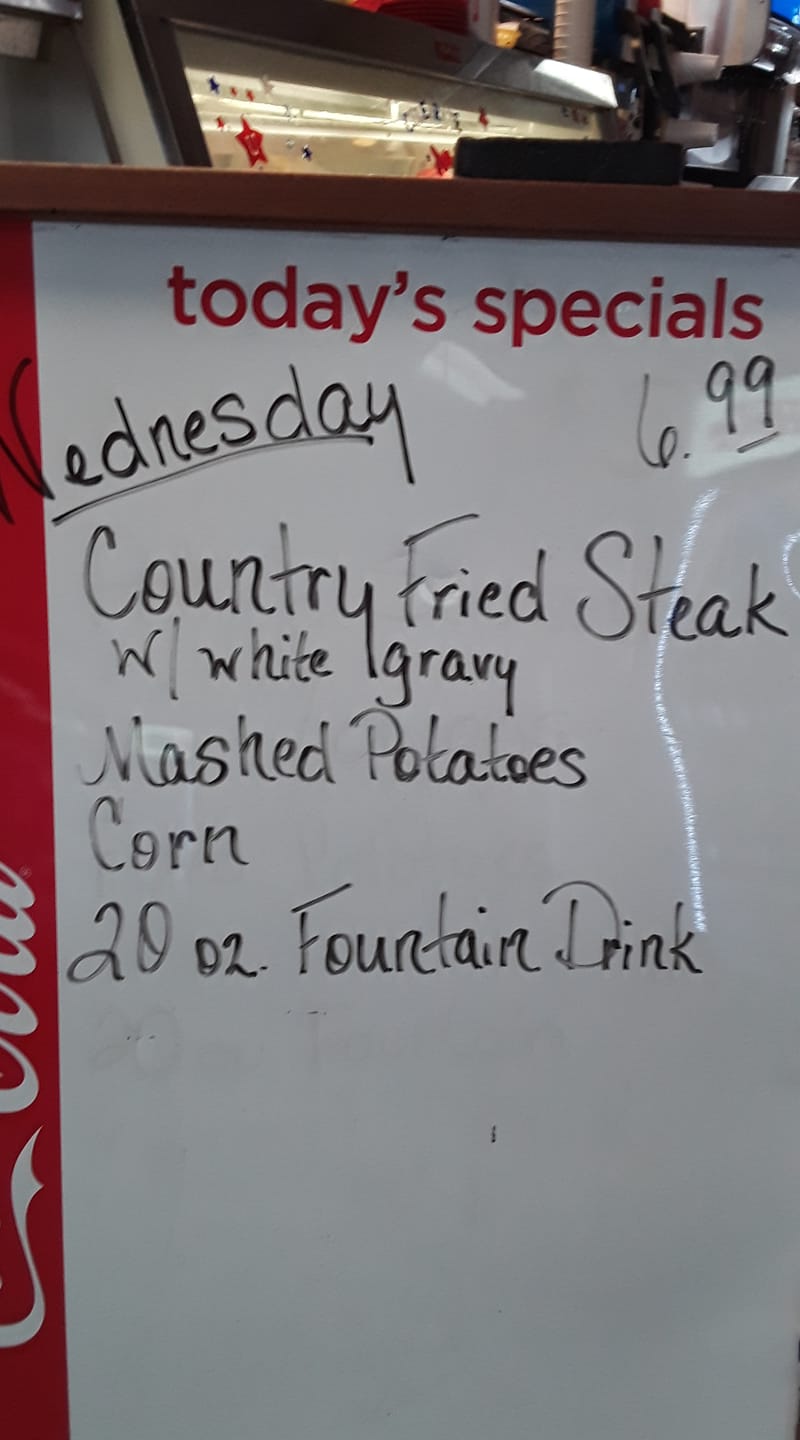 today's specials
Wednesday 6.99
Country Fried Steak
w/ white gravy
Mashed Potatoes
Corn
20 oz. Fountain Drink